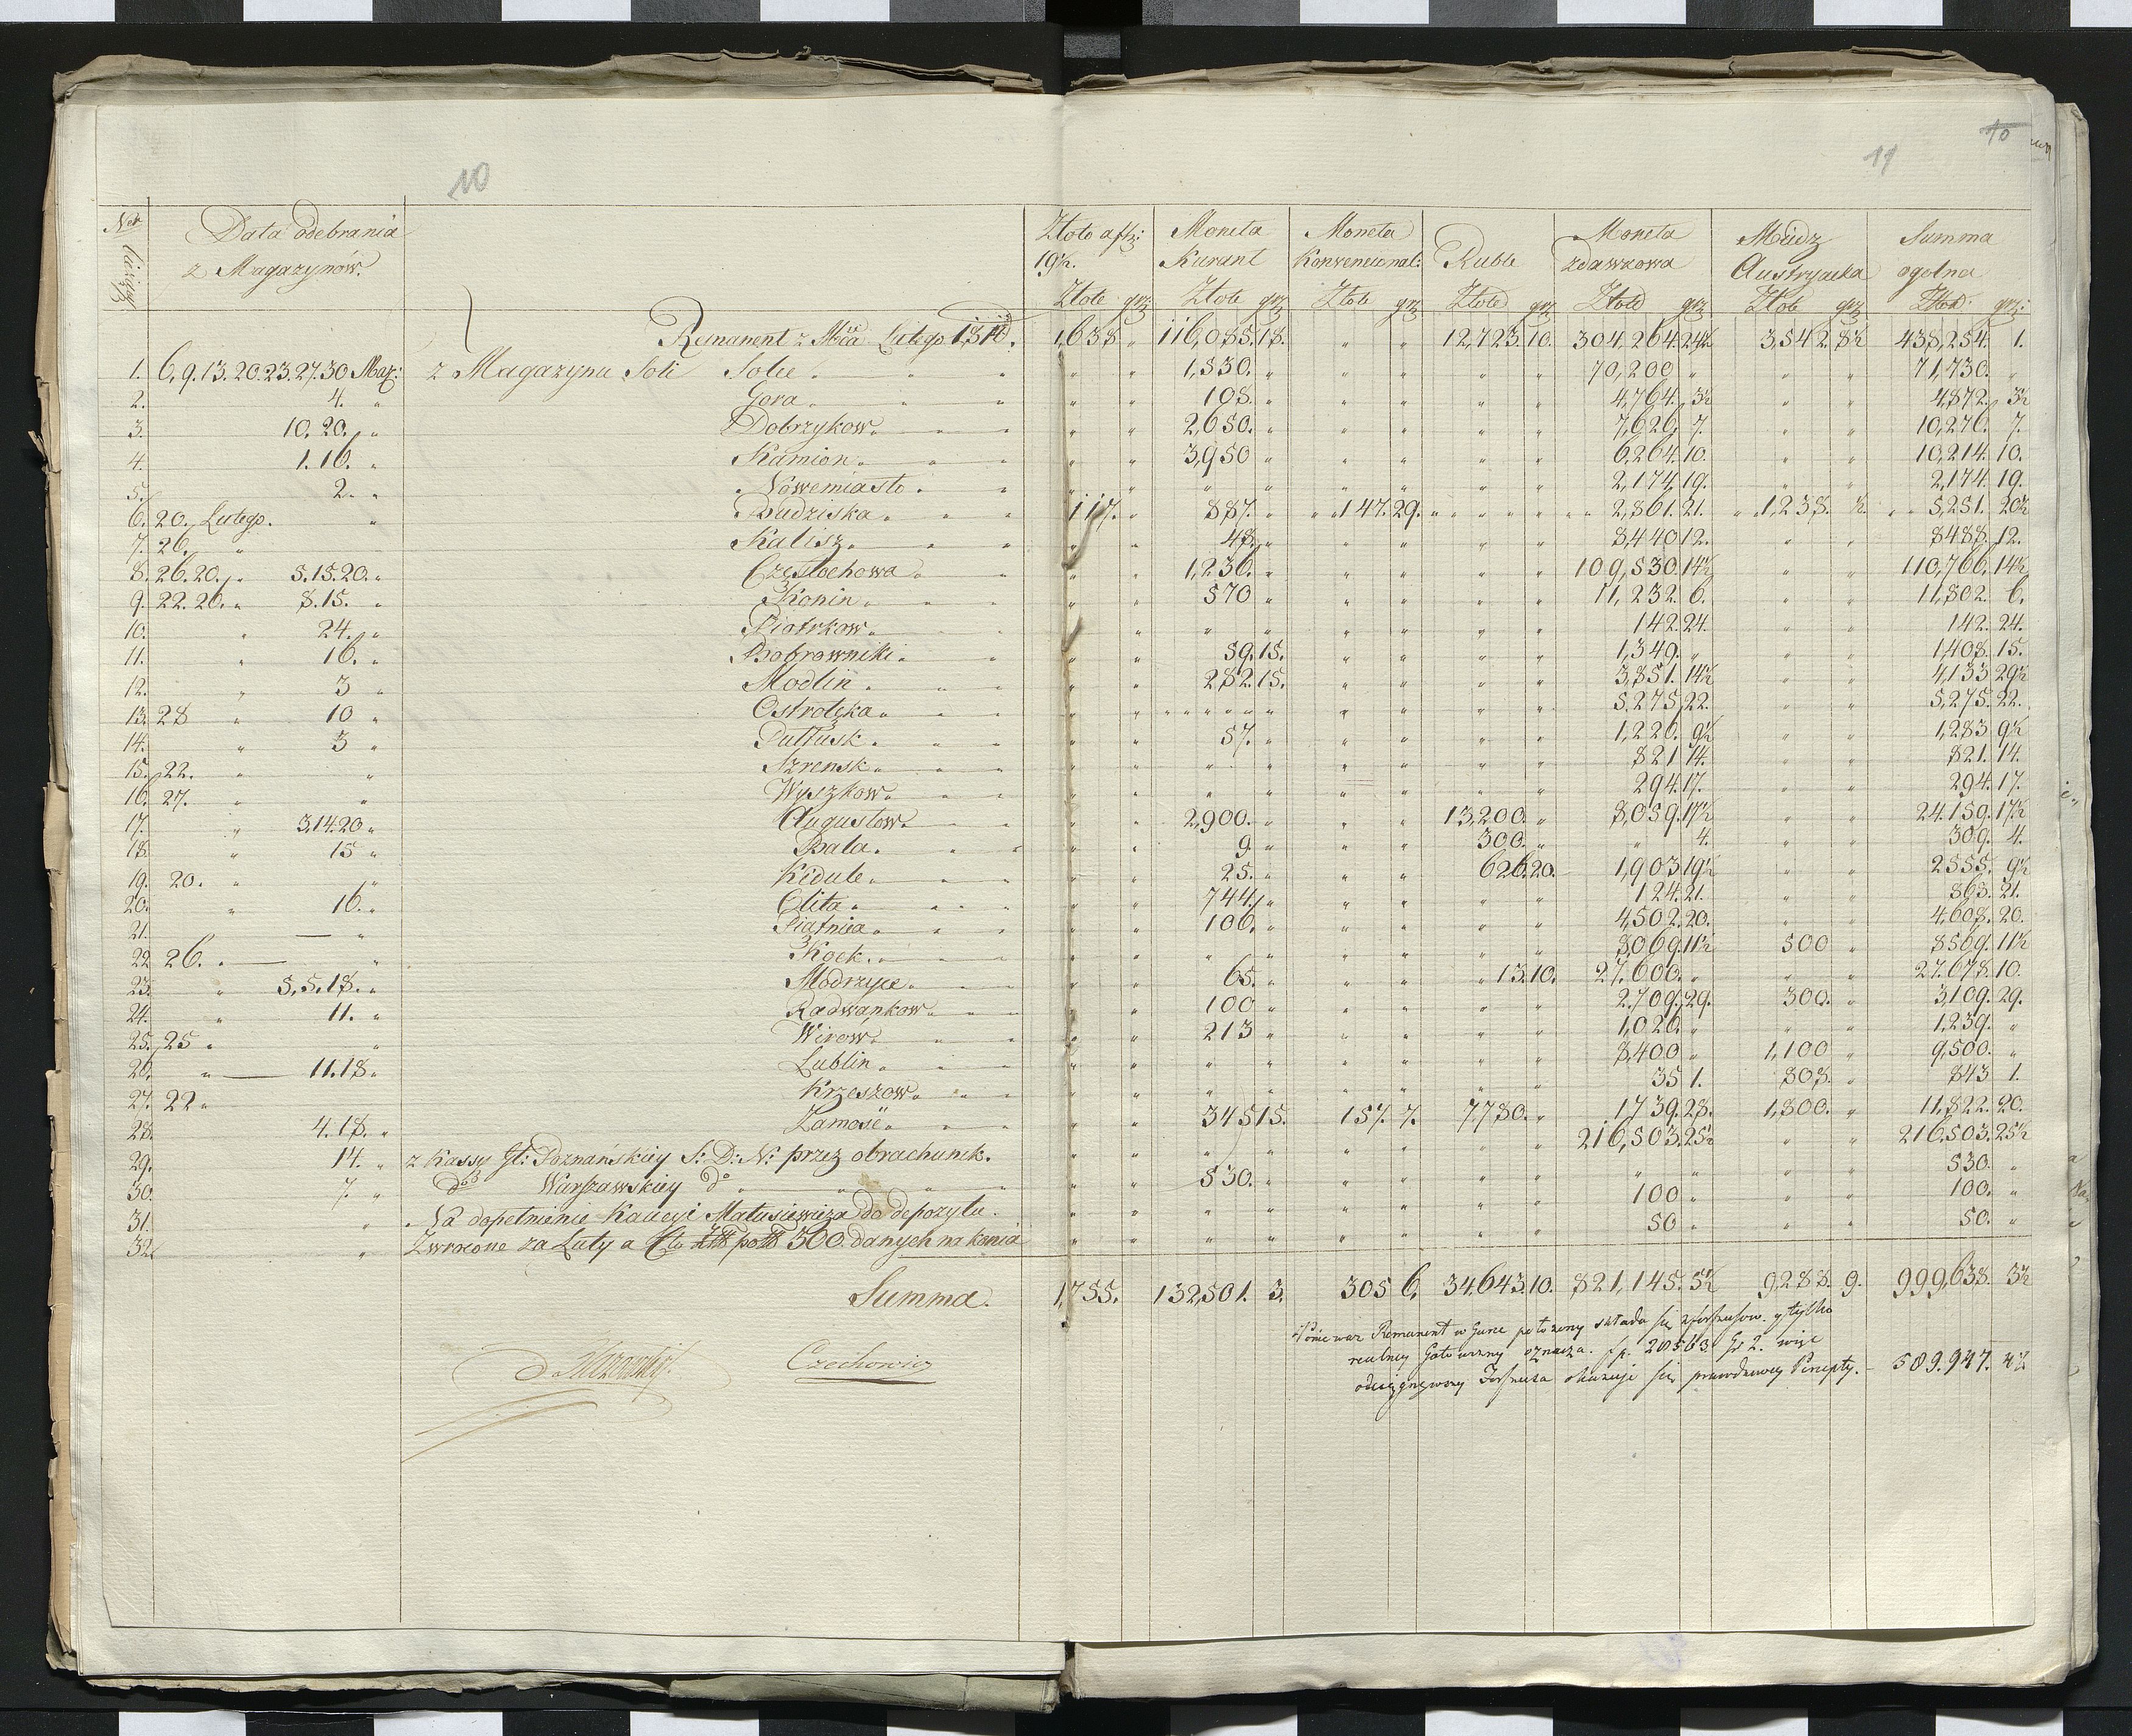 10
11
10
Ner bieżący
Data odebrania z Magazynów.
Złoto Złote grz
Moneta Kurant Złote grz
Moneta Konwencional: Złote grz
Ruble Złote grz
Moneta zdawkowa Złote grz
Miedz Austryacka Złote grz
Summa ogolna Złote grz:
Remanent z Mca Lutego 1810. 1,638 " 116,085. 18. " " 12,723. 10. 304,264. 24½ 3,542. 8½ 438,254. 1.
1. 6, 9. 13. 20. 23. 27. 30 Marz: z Magazynu Soli Solec " " 1,530. " " " " " 70,200 " " " 71,730. "
2. 4. " Gora " " 108. " " " " " 4,764. 3½ " " 4,872. 3½
3. 10. 20. " Dobrzykow " " 2,650. " " " " " 7,626. 7. " " 10,276. 7.
4. 1. 16. " Kamion " " 3,950 " " " " " 6,264. 10. " " 10,214. 10.
5. 2. " Nowemiasto " " " " " " " " 2,174. 19. " " 2,174. 19.
6. 20. Lutego. " Budziska 117. " 887. " 147. 29. " " 2,861. 21. 1,238. ½. 5,251. 20½
7. 26. " Kalisz " " 48. " " " " " 8,440 12. " " 8488. 12.
8. 26. 20. " 5. 15. 20. " Częstochowa " " 1,236. " " " " " 109,530. 14½ " " 110,766. 14½
9. 22. 26. " 8. 15. " Konin " " 570 " " " " " 11,232. 6. " " 11,802. 6.
10. " 24. " Piotrkow " " " " " " " " 142. 24. " " 142. 24.
11. " 16. " Bobrowniki " " 59. 15. " " " " 1,349. " " " 1,408. 15.
12. " 3 " Modlin " " 282. 15. " " " " 3,851. 14½ " " 4,133 29½
13. 28 " 10 " Ostrołęka " " " " " " " " 5,275 22. " " 5,275. 22.
14. " 3 " Pułtusk " " 57. " " " " " 1,226. 9½ " " 1,283 9½
15. 22. " " Szrensk " " " " " " " " 821 14. " " 821. 14.
16. 27. " " Wyszkow " " " " " " " " 294. 17. " " 294. 17.
17. " 3, 14. 20 " Augustow " " 2,900. " " " 13,200. " 8,059. 17½ " " 24,159. 17½
18. " 15 " Bała " " 9 " " " 300. " " 4. " " 309. 4.
19. 20. " " Kidule " " 25. " " " 626. 20. 1,903 19½ " " 2555. 9½
20. " 16. " Olita " " 744. " " " " " 124. 21. " " 868. 21.
21. — " Piatnica " " 106. " " " " " 4,502. 20. " " 4,608. 20.
22 26. " — " Kock. " " " " " " " " 8,069. 11½ 500 " 8569. 11½
23. " 5, 5, 18. " Modrzyce " " 65. " " " 13. 10. 27,600. " " " 27,678. 10.
24. " 11. " Radwankow " " 100 " " " " " 2,709. 29. 300. " 3,109. 29.
25. 25 " " Wirow " " 213 " " " " " 1,026. " " " 1,239. "
26. " — 11. 18 " Lublin " " " " " " " " 8,400 " 1,100 " 9,500. "
27. 22 " Krzeszow " " " " " " " " 35 1. 808. " 843 1.
28. 4. 18. " Zamość " " 345 15. 157. 7. 7780. " 1739. 28. 1,800. " 11,822. 20.
29. 14. " z Kassy Gł: Poznańskiey S: D: N: przez obrachunek. " " " " " " " " 216,503. 25½ " " 216,503. 25½
30. 7. " do Warszawskiey do " " 530. " " " " " " " " " 530. "
31. " Na dopełnienie Kaucyi Matusiewicza do depozytu. " " " " " " " " 100 " " " 100. "
32. " Zwrocone za Luty a Cto 300. danych na konia " " " " " " " " 50 " " " 50. "
Summa. 1,755. 132,501. 3. 305 6. 34,643. 10. 821,145. 5½ 9,288. 9. 999,638. 3½
Ponieważ Remanent w Gurze położony składa się z forszusow. y tylko
realney Gotowizny oznacza. fp. 28563 Gr 2. więc
odciągnąwszy Forszusa okazuje się prawdziwey Percepty. — 589.947. 4½
Czechowicz